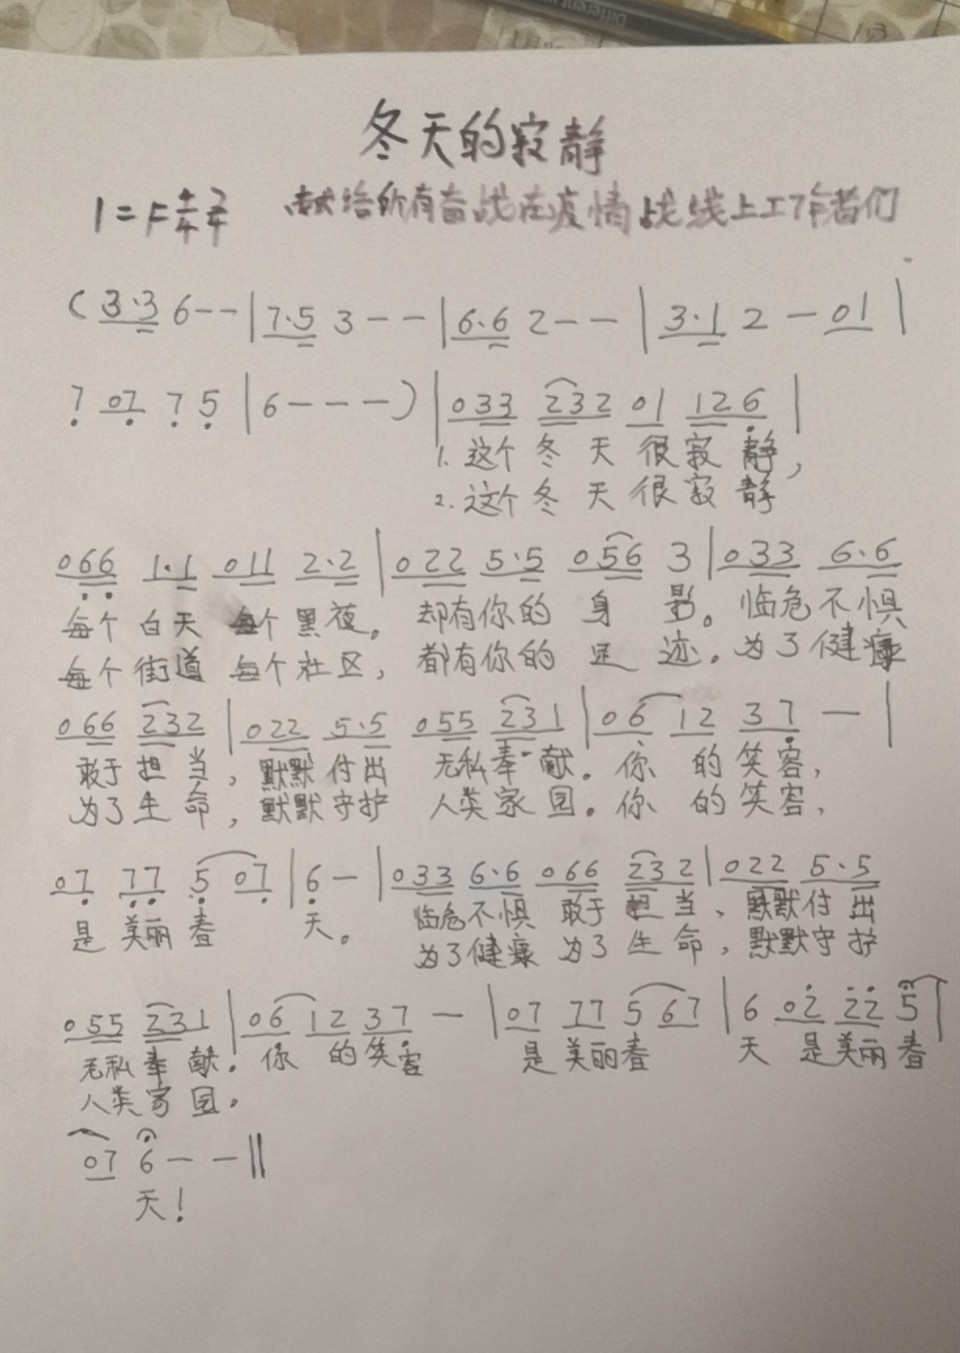 冬天的寂静
1=F 4/4 2/4 献给所有奋战在疫情战线上工作者们
( 3·3 6 - - | 7·5 3 - - | 6·6 2 - - | 3·1 2 - 01 |
7 07 7 5 | 6 - - - ) | 033 232 01 126 |
1. 这个冬天很寂静,
2. 这个冬天很寂静
066 1·1 011 2·2 | 022 5·5 056 3 | 033 6·6
每个白天 每个黑夜。却有你的身影。临危不惧
每个街道 每个社区, 都有你的足迹。为了健康
066 232 | 022 5·5 055 231 | 06 12 37 - |
敢于担当, 默默付出 无私奉献。你的笑容,
为了生命, 默默守护 人类家园。你的笑容,
07 77 5 07 | 6 - | 033 6·6 066 232 | 022 5·5
是美丽春天。临危不惧 敢于担当, 默默付出
为了健康 为了生命, 默默守护
055 231 | 06 12 37 - | 07 77 5 67 | 6 02 22 5 |
无私奉献。你的笑容 是美丽春天 是美丽春
人类家园。
07 6 - - ||
天!